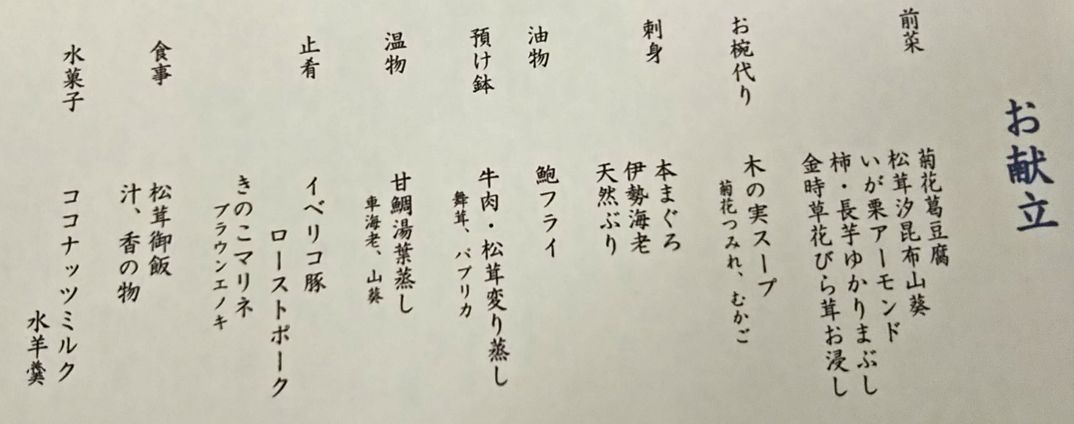 お献立
前菜
菊花葛豆腐
松茸汐昆布山葵
いが栗アーモンド
柿・長芋ゆかりまぶし
金時草花びら茸お浸し
お椀代り
木の実スープ
菊花つみれ、むかご
刺身
本まぐろ
伊勢海老
天然ぶり
油物
鮑フライ
預け鉢
牛肉・松茸変り蒸し
舞茸、パプリカ
温物
甘鯛湯葉蒸し
車海老、山葵
止肴
イベリコ豚
ローストポーク
きのこマリネ
ブラウンエノキ
食事
松茸御飯
汁、香の物
水菓子
ココナッツミルク
水羊羹